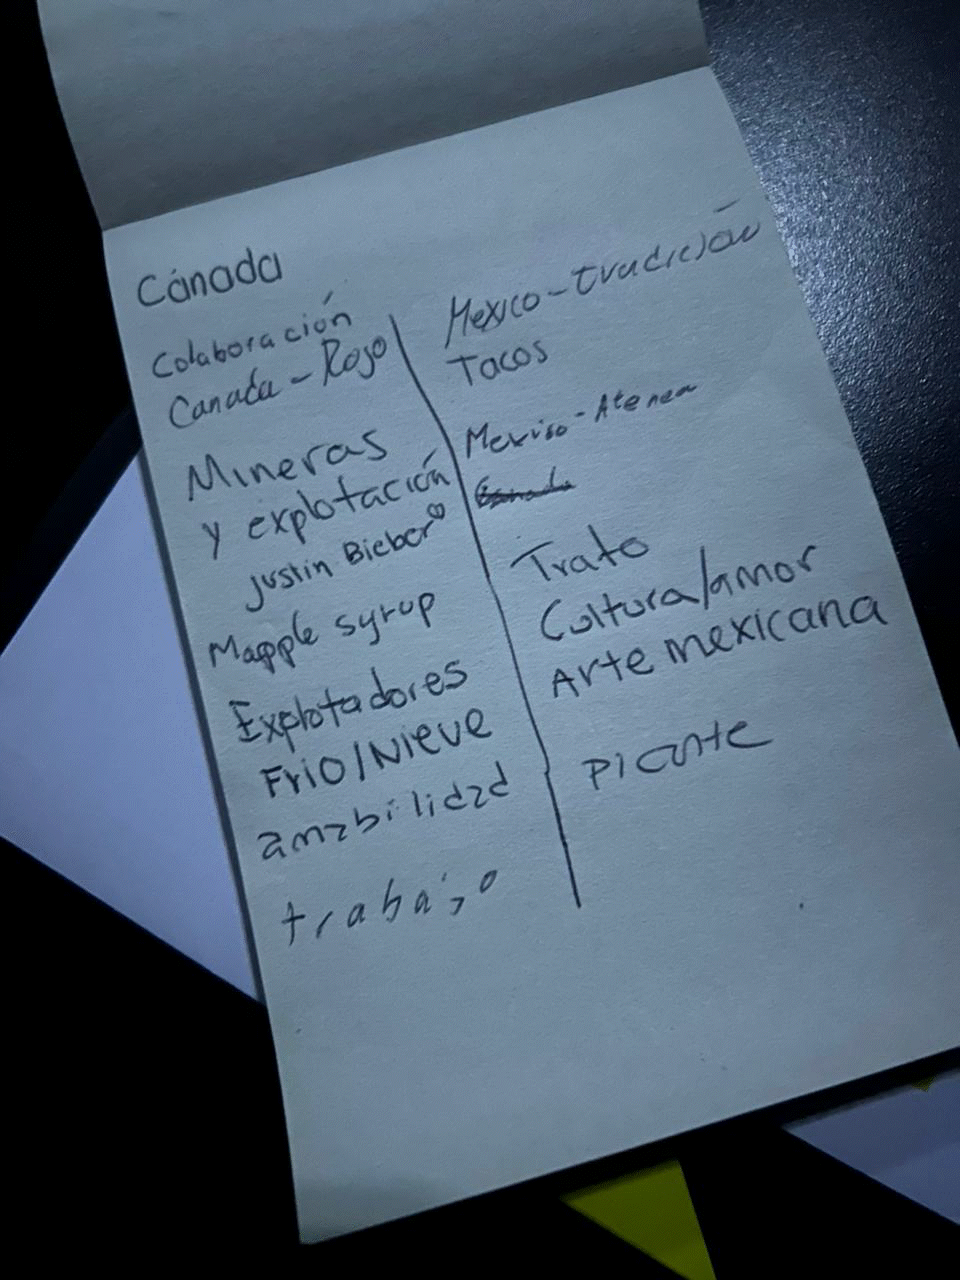 Cánada
Colaboración
Canada - Rojo
Mineras
y explotación
Justin Bieber
Mapple syrup
Explotadores
Frio/Nieve
amabilidad
trabajo
Mexico - tradición
Tacos
Mexico - Atenea
Trato
Cultura/amor
Arte mexicana
Picante